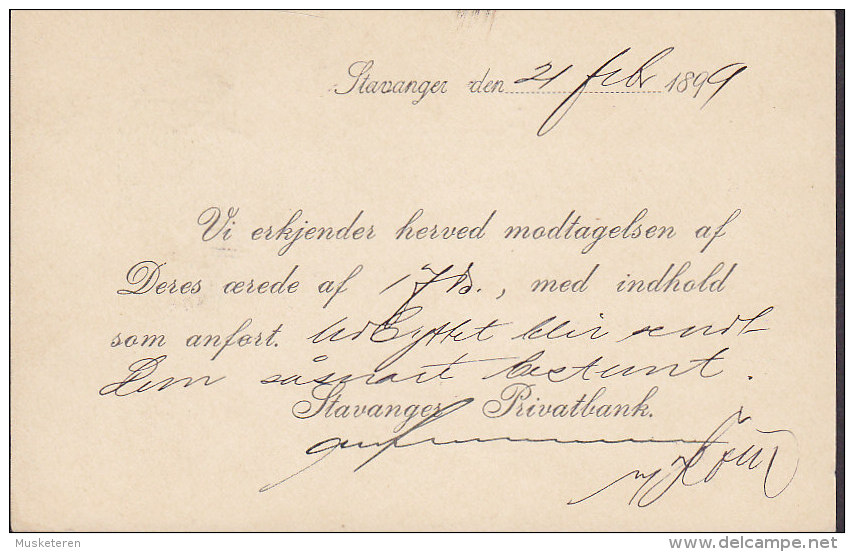 Stavanger den 21 febr 1899
Vi erkjender herved modtagelsen af
Deres ærede af 17 ds., med indhold
som anført. Udbyttet blir sendt
Dem såsnart bestemt.
Stavanger Privatbank.
Musketeren
delcampe.net